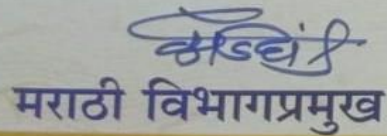 मराठी विभागप्रमुख